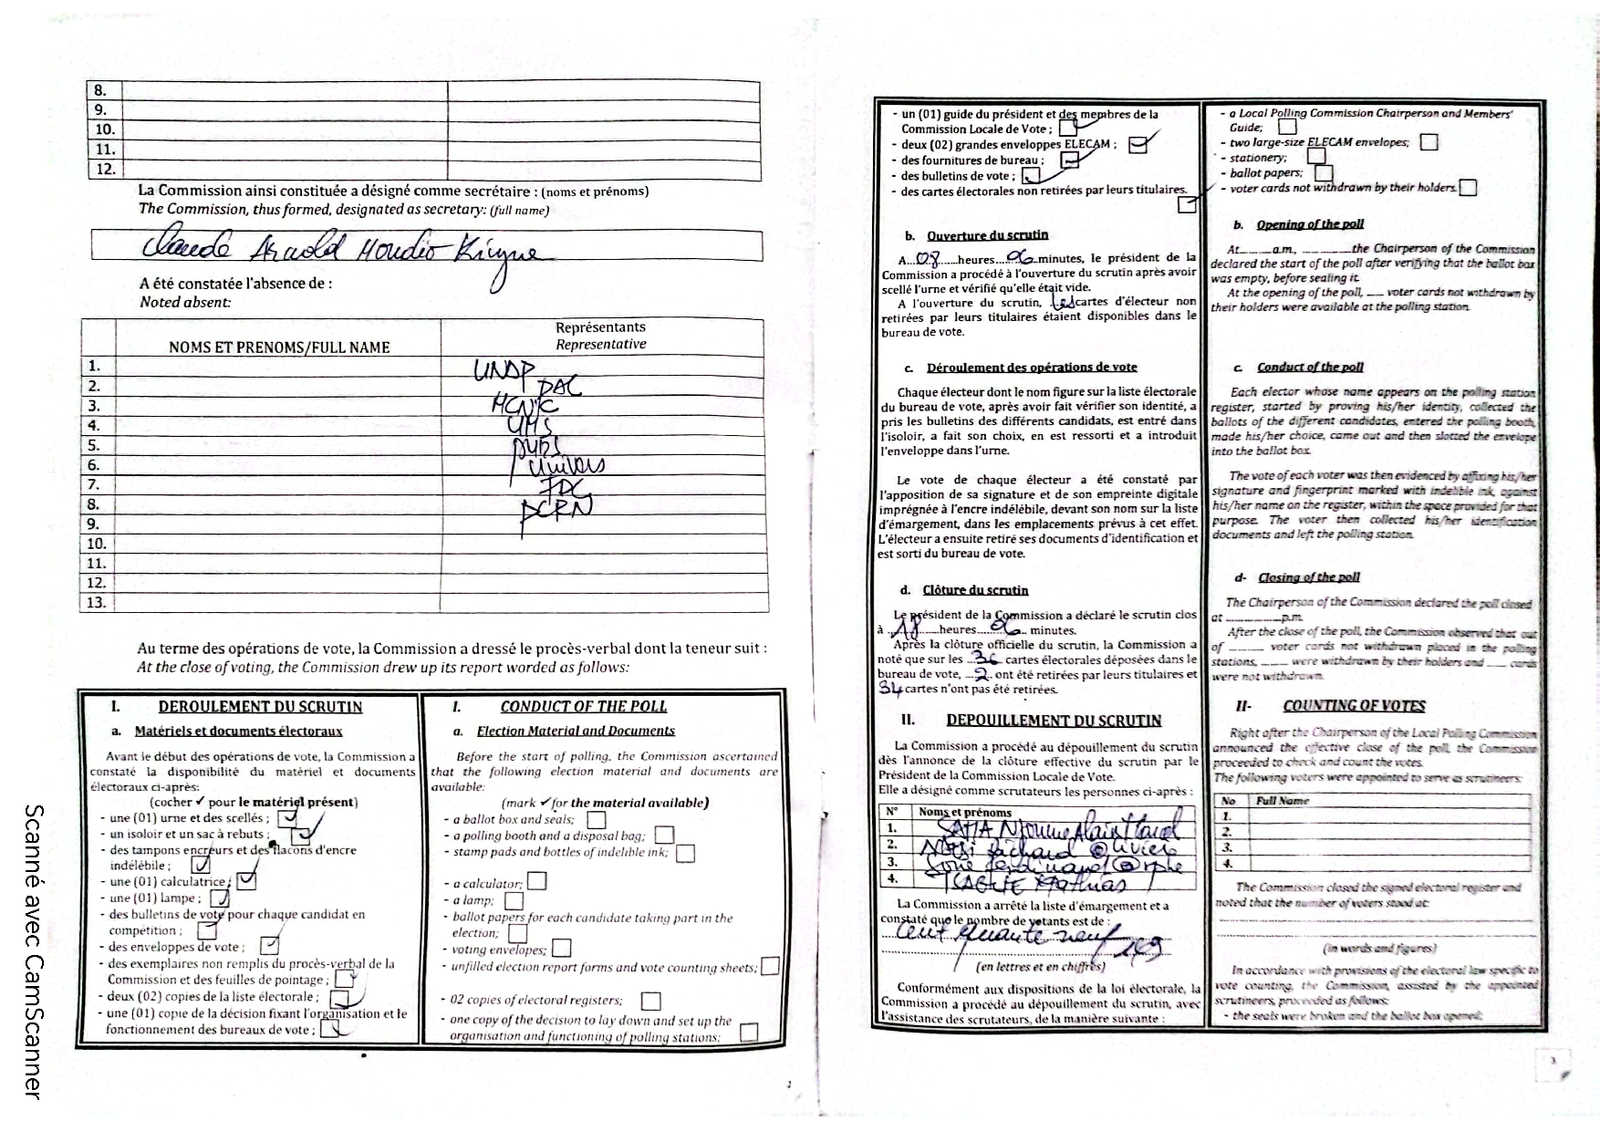 8.
9.
10.
11.
12.
La Commission ainsi constituée a désigné comme secrétaire : (noms et prénoms)
The Commission, thus formed, designated as secretary: (full name)
Claude Arnold
A été constatée l'absence de :
Noted absent:
NOMS ET PRENOMS/FULL NAME
Représentants
Representative
1. UNDP
2. PAC
3. MCNC
4. UMS
5.
6. Univers
7. FDC
8. PCRN
9.
10.
11.
12.
13.
Au terme des opérations de vote, la Commission a dressé le procès-verbal dont la teneur suit :
At the close of voting, the Commission drew up its report worded as follows:
I. DEROULEMENT DU SCRUTIN
a. Matériels et documents électoraux
Avant le début des opérations de vote, la Commission a
constaté la disponibilité du matériel et documents
électoraux ci-après:
(cocher ✓ pour le matériel présent)
- une (01) urne et des scellés ;
- un isoloir et un sac à rebuts ;
- des tampons encreurs et des flacons d'encre
indélébile ;
- une (01) calculatrice ;
- une (01) lampe ;
- des bulletins de vote pour chaque candidat en
compétition ;
- des enveloppes de vote ;
- des exemplaires non remplis du procès-verbal de la
Commission et des feuilles de pointage ;
- deux (02) copies de la liste électorale ;
- une (01) copie de la décision fixant l'organisation et le
fonctionnement des bureaux de vote ;
I. CONDUCT OF THE POLL
a. Election Material and Documents
Before the start of polling, the Commission ascertained
that the following election material and documents are
available:
(mark ✓ for the material available)
- a ballot box and seals;
- a polling booth and a disposal bag;
- stamp pads and bottles of indelible ink;
- a calculator;
- a lamp;
- ballot papers for each candidate taking part in the
election;
- voting envelopes;
- unfilled election report forms and vote counting sheets;
- 02 copies of electoral registers;
- one copy of the decision to lay down and set up the
organisation and functioning of polling stations;
2
- un (01) guide du président et des membres de la
Commission Locale de Vote ;
- deux (02) grandes enveloppes ELECAM ;
- des fournitures de bureau ;
- des bulletins de vote ;
- des cartes électorales non retirées par leurs titulaires.
b. Ouverture du scrutin
A 08 heures 06 minutes, le président de la
Commission a procédé à l'ouverture du scrutin après avoir
scellé l'urne et vérifié qu'elle était vide.
A l'ouverture du scrutin, les cartes d'électeur non
retirées par leurs titulaires étaient disponibles dans le
bureau de vote.
c. Déroulement des opérations de vote
Chaque électeur dont le nom figure sur la liste électorale
du bureau de vote, après avoir fait vérifier son identité, a
pris les bulletins des différents candidats, est entré dans
l'isoloir, a fait son choix, en est ressorti et a introduit
l'enveloppe dans l'urne.
Le vote de chaque électeur a été constaté par
l'apposition de sa signature et de son empreinte digitale
imprégnée à l'encre indélébile, devant son nom sur la liste
d'émargement, dans les emplacements prévus à cet effet.
L'électeur a ensuite retiré ses documents d'identification et
est sorti du bureau de vote.
d. Clôture du scrutin
Le président de la Commission a déclaré le scrutin clos
à 18 heures 06 minutes.
Après la clôture officielle du scrutin, la Commission a
noté que sur les 36 cartes électorales déposées dans le
bureau de vote, 2 ont été retirées par leurs titulaires et
34 cartes n'ont pas été retirées.
II. DEPOUILLEMENT DU SCRUTIN
La Commission a procédé au dépouillement du scrutin
dès l'annonce de la clôture effective du scrutin par le
Président de la Commission Locale de Vote.
Elle a désigné comme scrutateurs les personnes ci-après :
N° Noms et prénoms
1. Alain
2. Richard Olivier
3. Ferdinand
4. Mathias
La Commission a arrêté la liste d'émargement et a
constaté que le nombre de votants est de :
Cent neuf
(en lettres et en chiffres)
Conformément aux dispositions de la loi électorale, la
Commission a procédé au dépouillement du scrutin, avec
l'assistance des scrutateurs, de la manière suivante :
- a Local Polling Commission Chairperson and Members'
Guide;
- two large-size ELECAM envelopes;
- stationery;
- ballot papers;
- voter cards not withdrawn by their holders.
b. Opening of the poll
At____a.m, ____the Chairperson of the Commission
declared the start of the poll after verifying that the ballot box
was empty, before sealing it.
At the opening of the poll, ___ voter cards not withdrawn by
their holders were available at the polling station.
c. Conduct of the poll
Each elector whose name appears on the polling station
register, started by proving his/her identity, collected the
ballots of the different candidates, entered the polling booth,
made his/her choice, came out and then slotted the envelope
into the ballot box.
The vote of each voter was then evidenced by affixing his/her
signature and fingerprint marked with indelible ink, against
his/her name on the register, within the space provided for that
purpose. The voter then collected his/her identification
documents and left the polling station.
d- Closing of the poll
The Chairperson of the Commission declared the poll closed
at ________p.m.
After the close of the poll, the Commission observed that out
of _____ voter cards not withdrawn placed in the polling
stations, ____ were withdrawn by their holders and ___ cards
were not withdrawn.
II- COUNTING OF VOTES
Right after the Chairperson of the Local Polling Commission
announced the effective close of the poll, the Commission
proceeded to check and count the votes.
The following voters were appointed to serve as scrutineers:
No Full Name
1.
2.
3.
4.
The Commission closed the signed electoral register and
noted that the number of voters stood at:
(in words and figures)
In accordance with provisions of the electoral law specific to
vote counting, the Commission, assisted by the appointed
scrutineers, proceeded as follows:
- the seals were broken and the ballot box opened;
3
Scanné avec CamScanner